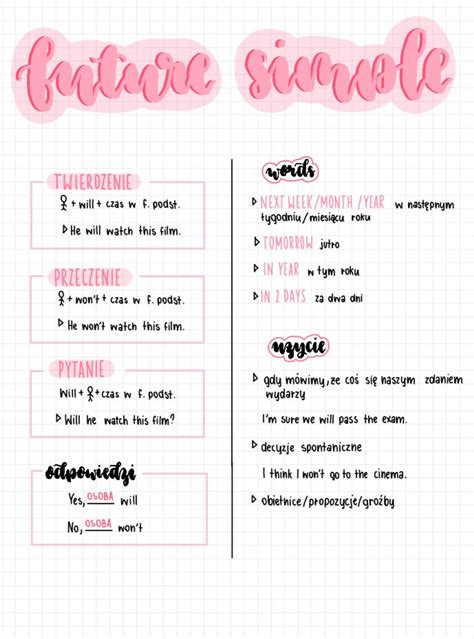 future simple
TWIERDZENIE
+ will + czas w f. podst.
He will watch this film.
PRZECZENIE
+ won't + czas w f. podst.
He won't watch this film.
PYTANIE
Will + + czas w f. podst.
Will he watch this film?
odpowiedzi
Yes, OSOBA will
No, OSOBA won't
words
NEXT WEEK/MONTH /YEAR w następnym
tygodniu/miesiącu roku
TOMORROW jutro
IN YEAR w tym roku
IN 2 DAYS za dwa dni
użycie
gdy mówimy, że coś się naszym zdaniem
wydarzy
I'm sure we will pass the exam.
decyzje spontaniczne
I think I won't go to the cinema.
obietnice/propozycje/groźby